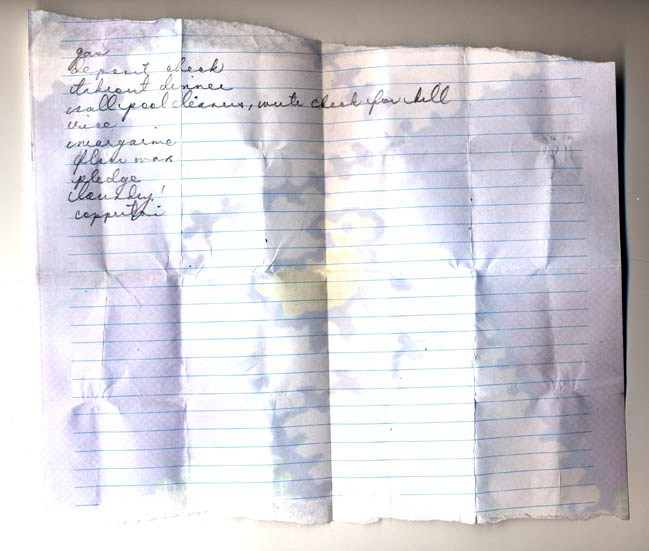 gas
deposit check
takeout dinner
call pool cleaners, write check for bill
rice
margarine
floor wax
pledge
laundry!